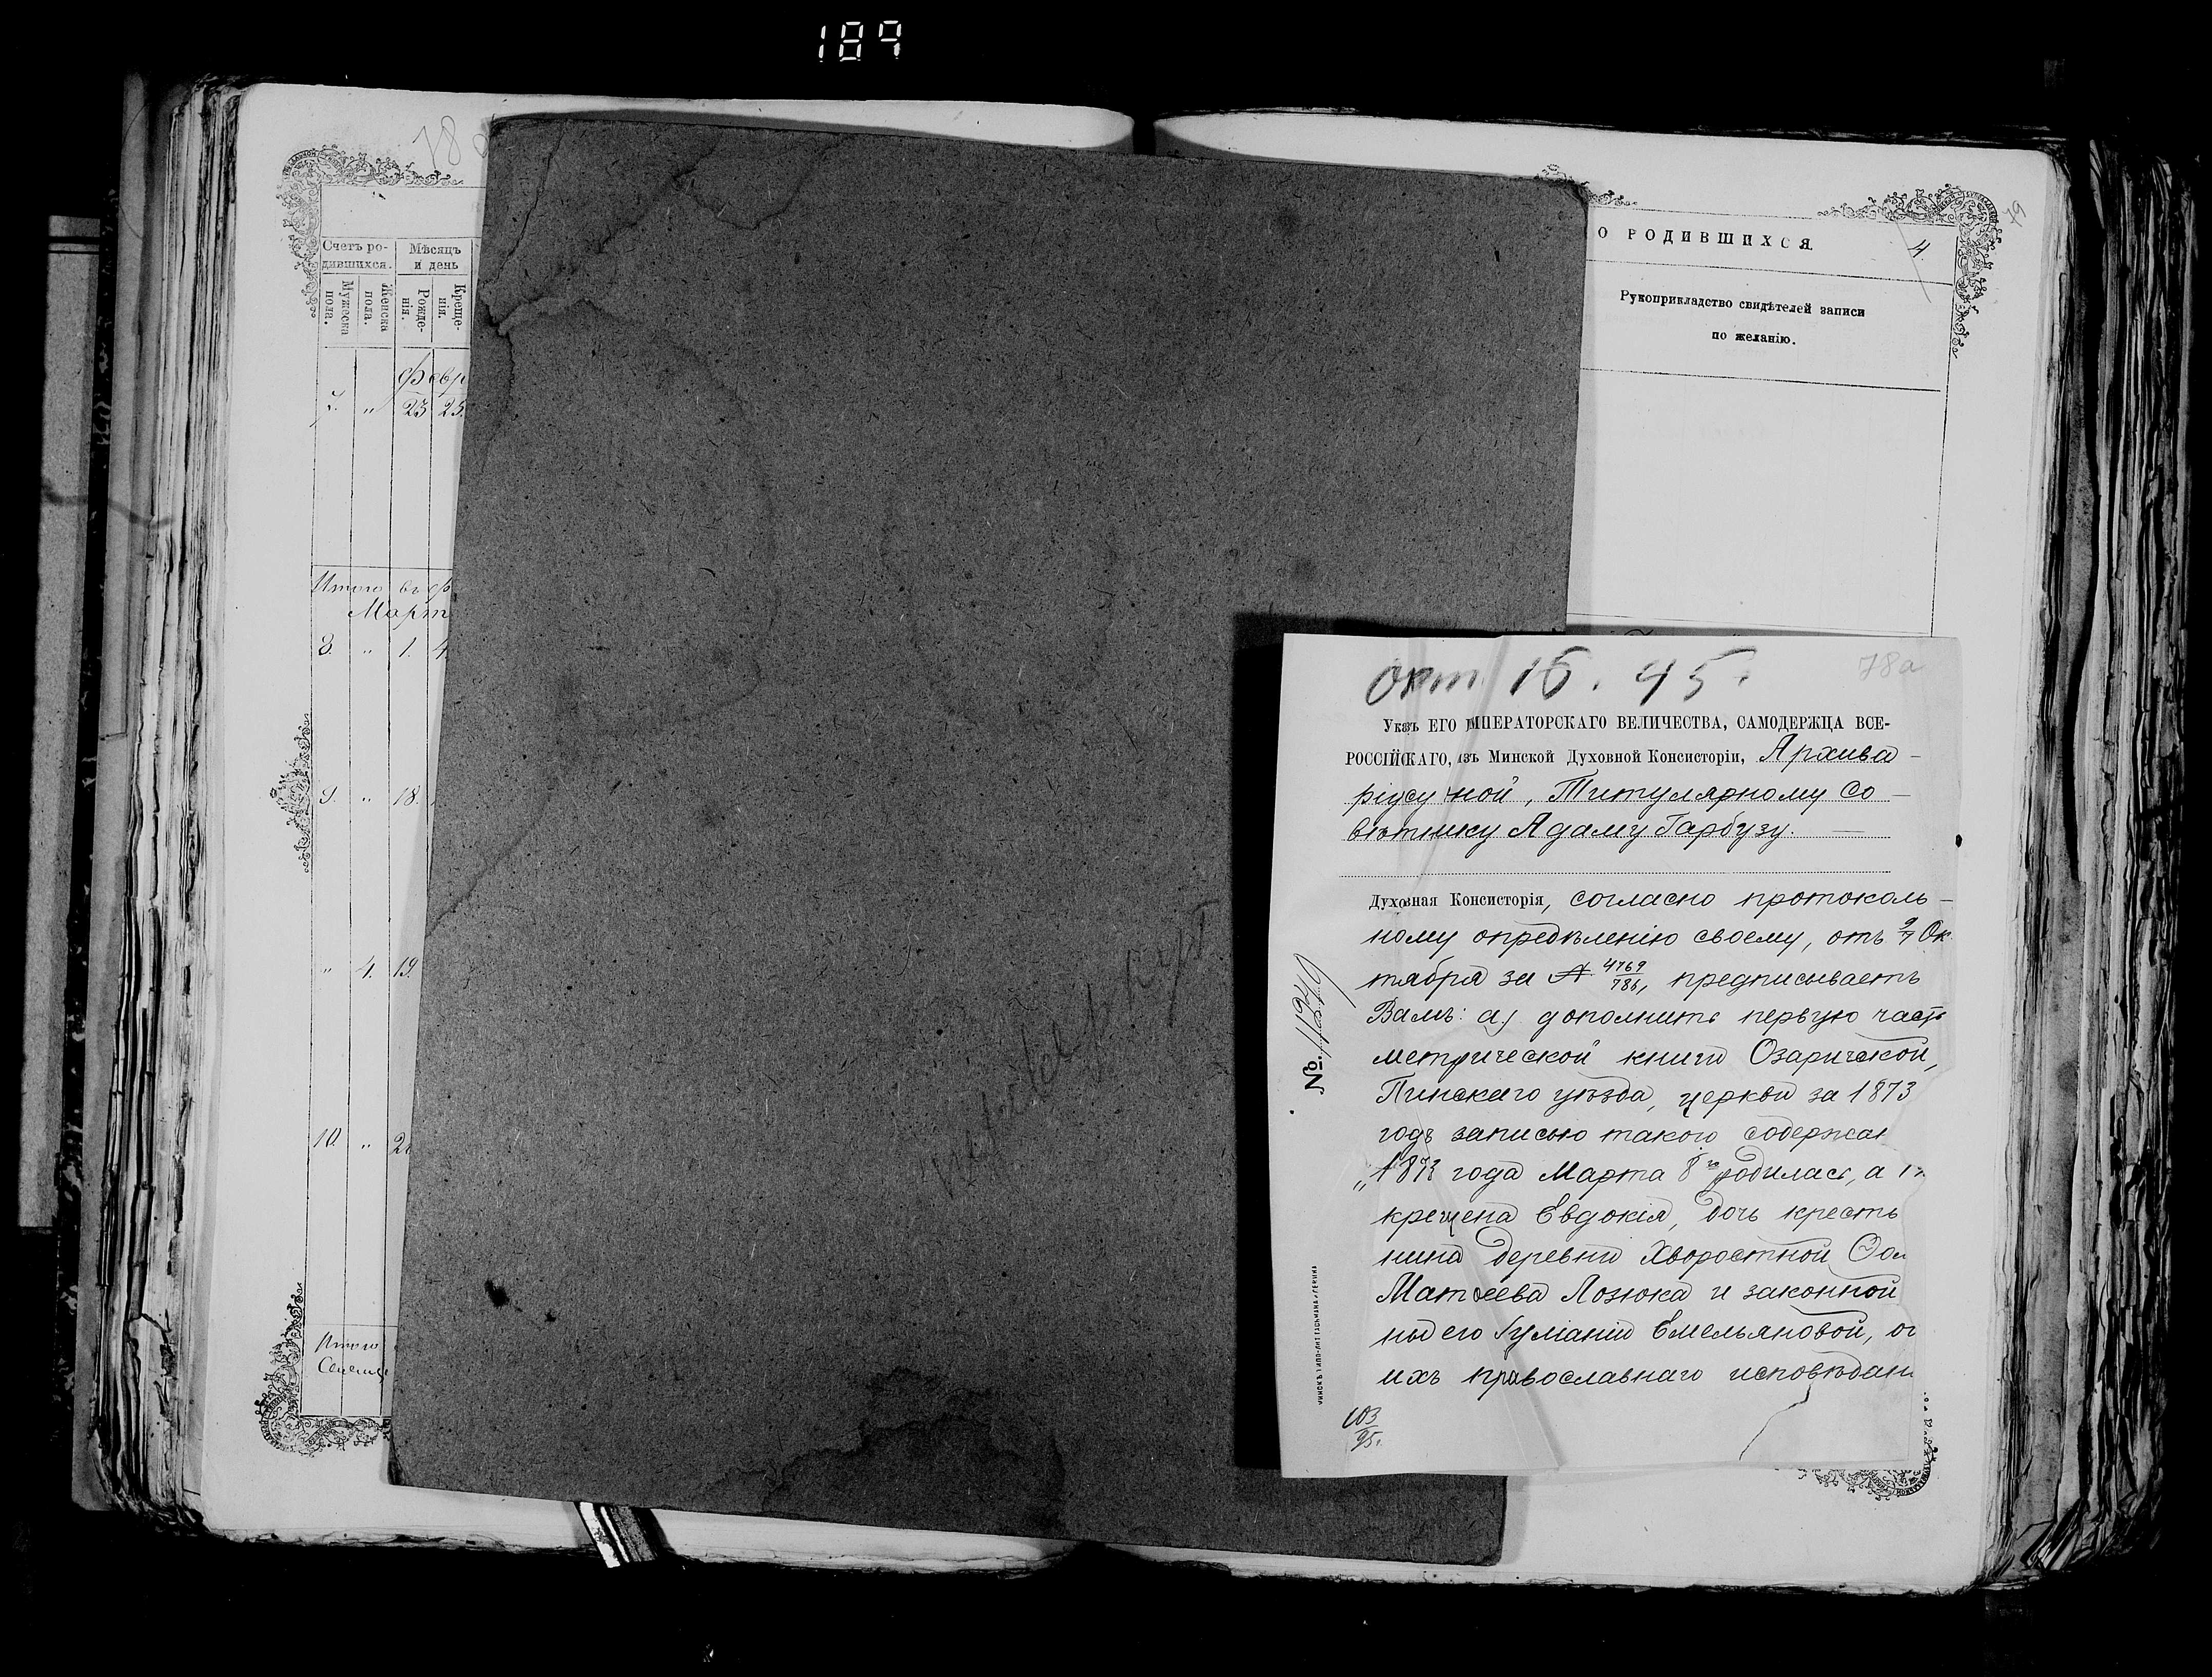 189
78
Счетъ ро-
дившихся.
Мѣсяцъ
и день
Мужеска
пола.
Женска
пола.
Рожде-
нія.
Креще-
нія.
Февр
7. " 23 25.
Итого въ ф
Март
8. " 1. 4.
9. " 18.
" 4. 19.
10. "
Итого
О РОДИВШИХСЯ.
4.
79
Рукоприкладство свидѣтелей записи
по желанію.
окт 15. 45.
78а
Указъ ЕГО ИМПЕРАТОРСКАГО ВЕЛИЧЕСТВА, САМОДЕРЖЦА ВСЕ-
РОССІЙСКАГО, изъ Минской Духовной Консисторіи, Архива-
ріусу ной, Титулярному Со-
вѣтнику Адаму Гарбузу.
Духовная Консисторія, согласно протоколь-
ному опредѣленію своему, отъ 9/7 Ок
тября за № 4769/786, предписываетъ
Вамъ: а) дополнить первую часть
метрической книги Озаричской,
Пинскаго уѣзда, церкви за 1873
годъ записью такого содержан
„1873 года Марта 8го родилась, а
крещена Евдокія, дочь кресть
нина деревни Хворостной
Матѳеева Лозюка и законной
ны его Іуліаніи Емельяновой,
ихъ православнаго исповѣдан
№. 11249
103/95.